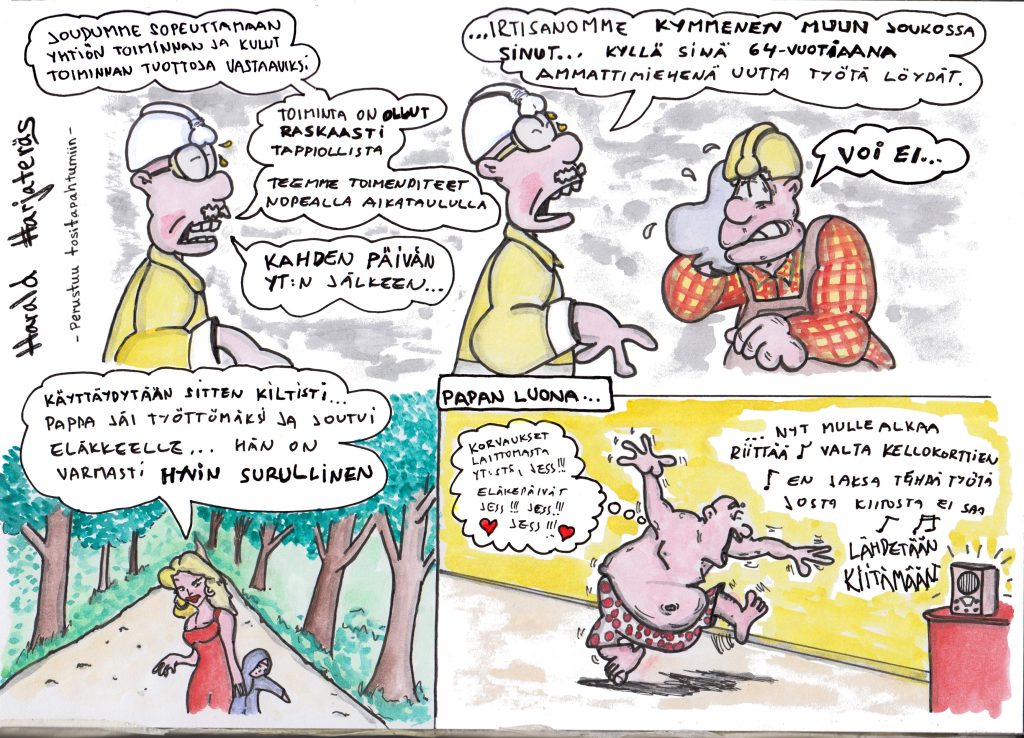 Harald Harjateräs
- Perustuu tositapahtumiin -
JOUDUMME SOPEUTTAMAAN
YHTIÖN TOIMINNAN JA KULUT
TOIMINNAN TUOTTOJA VASTAAVIKSI
TOIMINTA ON OLLUT
RASKAASTI
TAPPIOLLISTA
TEEMME TOIMENPITEET
NOPEALLA AIKATAULULLA
KAHDEN PÄIVÄN
YT:N JÄLKEEN...
...IRTISANOMME KYMMENEN MUUN JOUKOSSA
SINUT... KYLLÄ SINÄ 64-VUOTIAANA
AMMATTIMIEHENÄ UUTTA TYÖTÄ LÖYDÄT.
VOI EI...
KÄYTTÄYDYTÄÄN SITTEN KILTISTI...
PAPPA JÄI TYÖTTÖMÄKSI JA JOUTUI
ELÄKKEELLE... HÄN ON
VARMASTI HYVIN SURULLINEN
PAPAN LUONA...
KORVAUKSET
LAITTOMASTA
YT:STÄ, JESS!!!
ELÄKEPÄIVÄT
JESS!!! JESS!!!
JESS!!!
NYT MULLE ALKAA
RIITTÄÄ VALTA KELLOKORTTIEN
EN JAKSA TEHDÄ TYÖTÄ
JOSTA KIITOSTA EI SAA
LÄHDETÄÄN
KIITÄMÄÄN